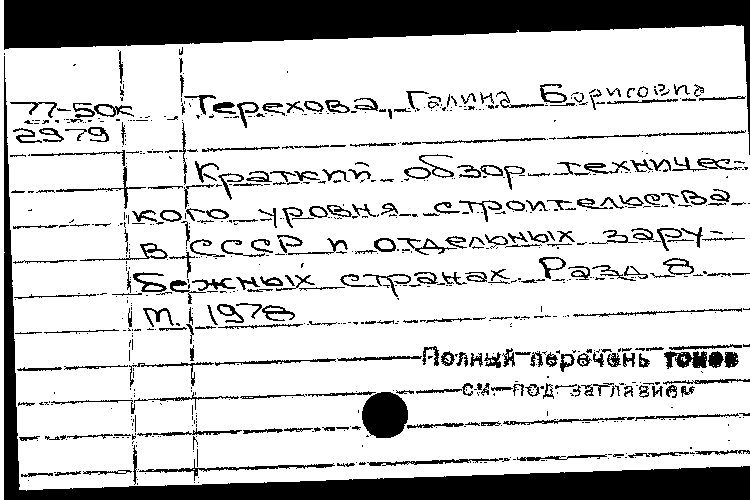 77-50к Терехова, Галина Борисовна
2979
Краткий обзор техничес-
кого уровня строительства
в СССР и отдельных зару-
бежных странах. Разд. 8.
М. 1978
Полный перечень томов
см. под заглавием